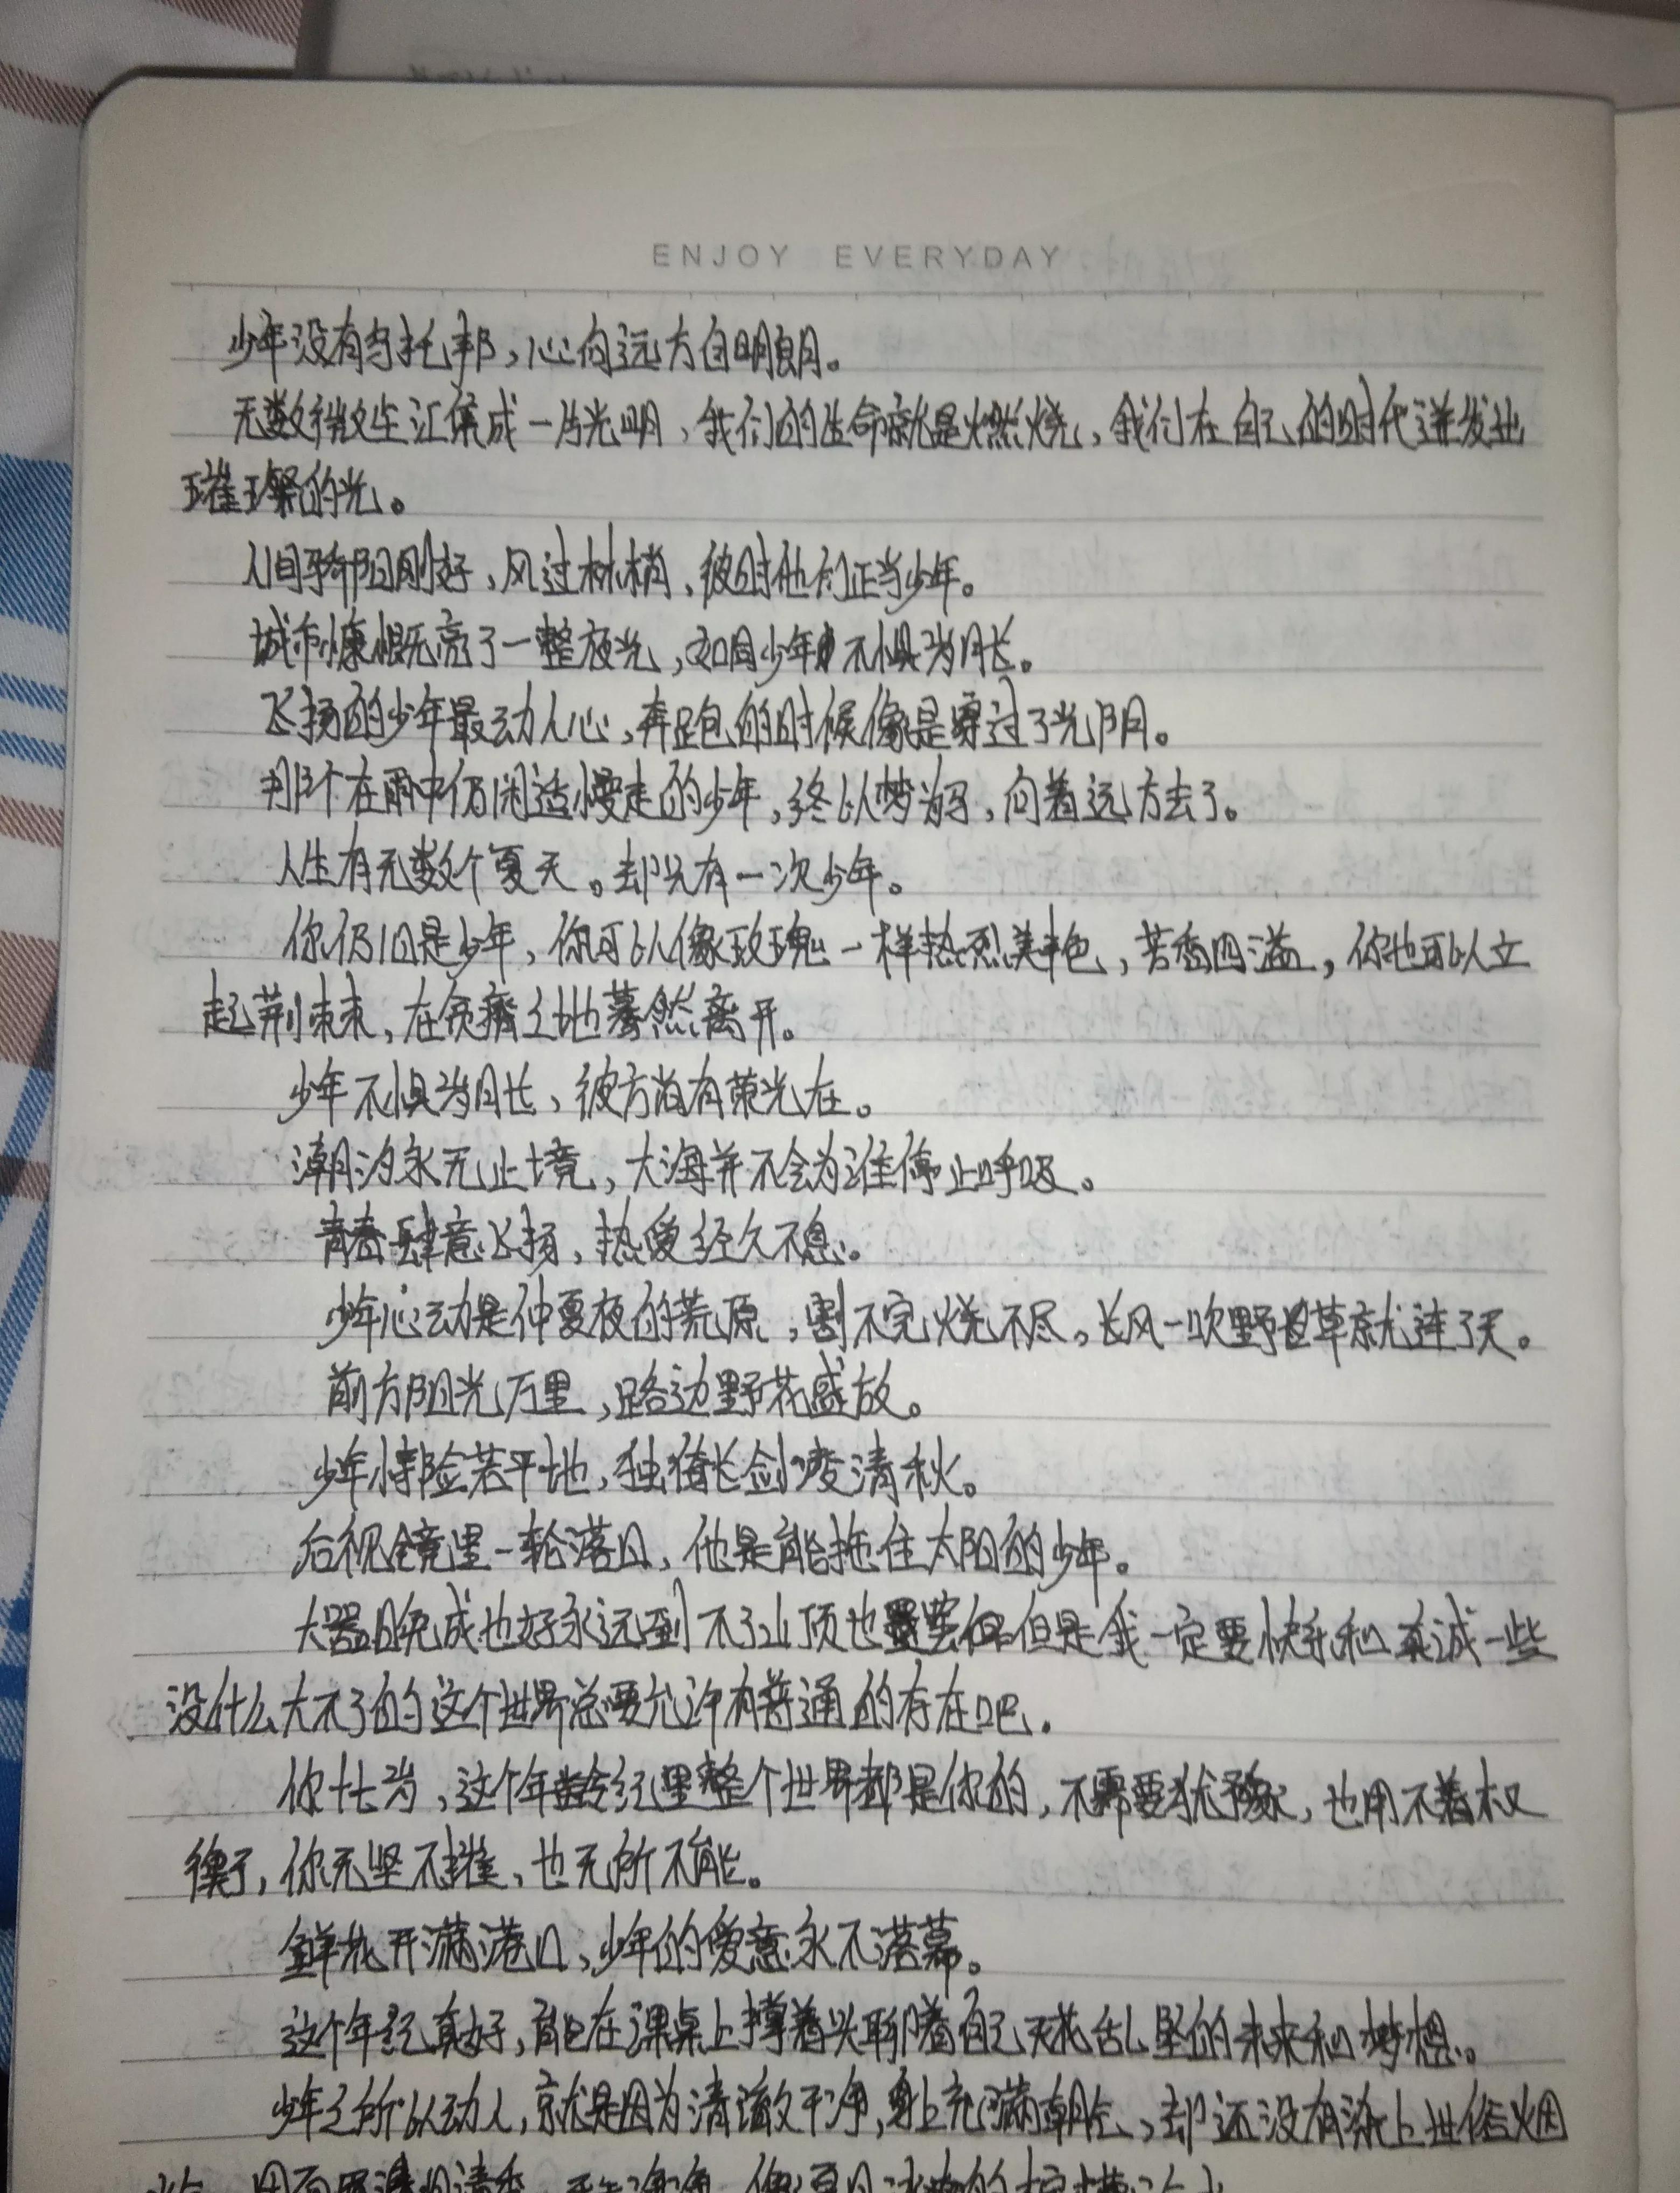 ENJOY EVERYDAY
少年没有乌托邦，心向远方自明朗。
无数微尘汇集成一片光明，我们的生命就是燃烧，我们在自己的时代迸发出
璀璨的光。
人间骄阳刚好，风过林梢，彼时他们正当少年。
城市慷慨亮了一整夜光，如同少年不惧岁月长。
飞扬的少年最动人心，奔跑的时候像是穿过了光阴。
那个在雨中仍闲适慢走的少年，终以梦为马，向着远方去了。
人生有无数个夏天。却只有一次少年。
你仍旧是少年，你可以像玫瑰一样热烈美艳，芳香四溢，你也可以立
起荆棘，在贫瘠之地蓦然离开。
少年不惧岁月长，彼方尚有荣光在。
潮汐永无止境，大海并不会为谁停止呼吸。
青春肆意飞扬，热爱经久不息。
少年心动是仲夏夜的荒原，割不完烧不尽。长风一吹野草就连了天。
前方阳光万里，路边野花盛放。
少年恃险若平地，独倚长剑凌清秋。
后视镜里一轮落日，他是能拖住太阳的少年。
大器晚成也好永远到不了山顶也罢但是我一定要快乐和真诚一些
没什么大不了的这个世界总要允许有普通的存在吧.
你十七岁，这个年龄纪里整个世界都是你的，不需要犹豫，也用不着权
衡，你无坚不摧，也无所不能。
鲜花开满港口，少年的爱意永不落幕。
这个年纪真好，能在课桌上撑着头聊着自己天花乱坠的未来和梦想。
少年之所以动人，就是因为清澈干净，身上充满朝气，却还没有染上世俗烟